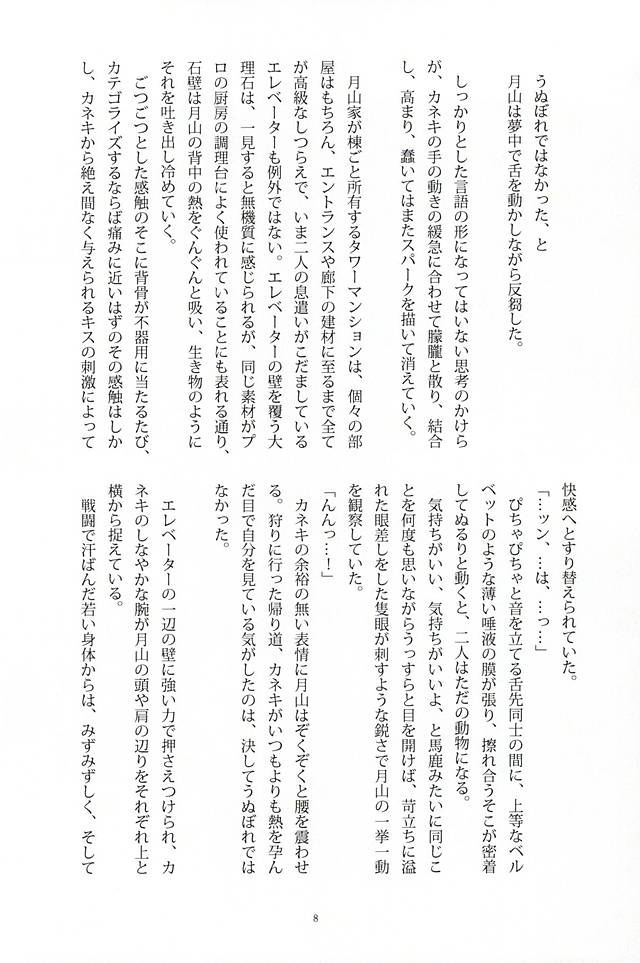 うぬぼれではなかった、と
月山は夢中で舌を動かしながら反芻した。
しっかりとした言語の形になってはいない思考のかけら
が、カネキの手の動きの緩急に合わせて朦朧と散り、結合
し、高まり、蠢いてはまたスパークを描いて消えていく。
月山家が棟ごと所有するタワーマンションは、個々の部
屋はもちろん、エントランスや廊下の建材に至るまで全て
が高級なしつらえで、いま二人の息遣いがこだましている
エレベーターも例外ではない。エレベーターの壁を覆う大
理石は、一見すると無機質に感じられるが、同じ素材がプ
ロの厨房の調理台によく使われていることにも表れる通り、
石壁は月山の背中の熱をぐんぐんと吸い、生き物のように
それを吐き出し冷めていく。
ごつごつとした感触のそこに背骨が不器用に当たるたび、
カテゴライズするならば痛みに近いはずのその感触はしか
し、カネキから絶え間なく与えられるキスの刺激によって
快感へとすり替えられていた。
「…ッン、…は、…っ…」
ぴちゃぴちゃと音を立てる舌先同士の間に、上等なベル
ベットのような薄い唾液の膜が張り、擦れ合うそこが密着
してぬるりと動くと、二人はただの動物になる。
気持ちがいい、気持ちがいいよ、と馬鹿みたいに同じこ
とを何度も思いながらうっすらと目を開けば、苛立ちに溢
れた眼差しをした隻眼が刺すような鋭さで月山の一挙一動
を観察していた。
「んんっ…！」
カネキの余裕の無い表情に月山はぞくぞくと腰を震わせ
る。狩りに行った帰り道、カネキがいつもよりも熱を孕ん
だ目で自分を見ている気がしたのは、決してうぬぼれでは
なかった。
エレベーターの一辺の壁に強い力で押さえつけられ、カ
ネキのしなやかな腕が月山の頭や肩の辺りをそれぞれ上と
横から捉えている。
戦闘で汗ばんだ若い身体からは、みずみずしく、そして
8